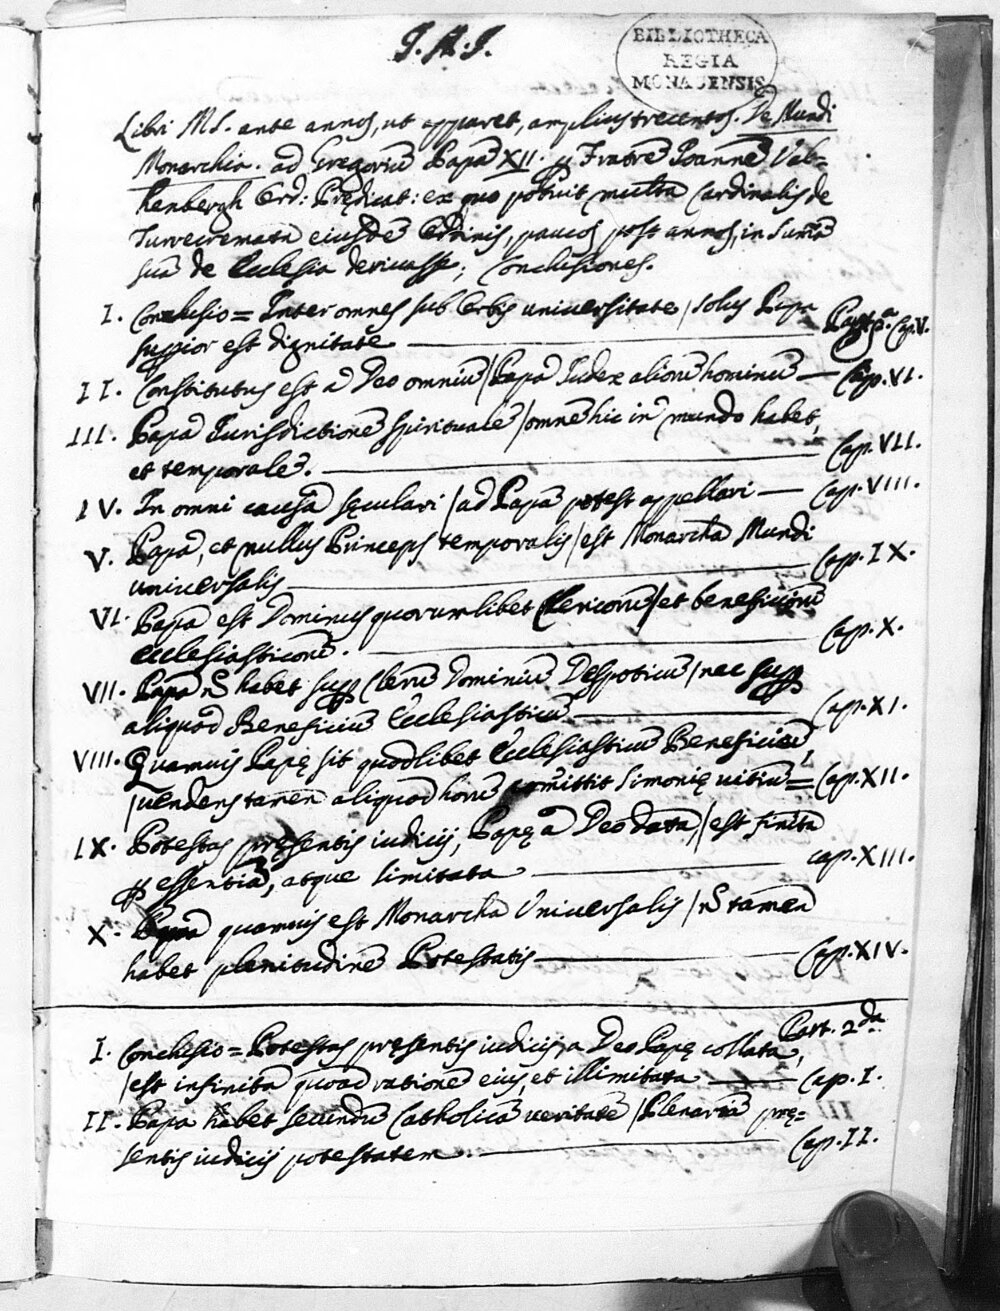 J. M. J.
BIBLIOTHECA
REGIA
MONACENSIS
Libri MS. ante annos, ut apparet, amplius trecentos. De Mundi
Monarchia. ad Gregoriũ Papã XII. ꝑ Fratrẽ Joannẽ Val=
kenbergh Ord: Prędicat: ex quo potuit multa Cardinalis de
Turrecremata eiusdẽ Ordinis, paucos post annos, in Sum̃a
suã de Ecclesia derivasse; Conclusiones.
I. Conclusio = Inter omnes sub Orbis universitate / solus Papa Part. Cap. V.
suꝑior est dignitate
II. Constitutus est a Deo omniũ / Papã Judex alioru hominũ — Cap. VI.
III. Papã Jurisdictionẽ spiritualẽ / omnẽ hic in mundo habet,
et temporalẽ. Cap. VII.
IV. In omni causã sęculari / ad Papã potest appellari — Cap. VIII.
V. Papã, et nullus Princeps temporalis / est Monarcha Mundi
universalis Cap. IX.
VI. Papã est Dominus quorumlibet Clericorũ / et beneficiorũ
Ecclesiasticorũ. Cap. X.
VII. Papa habet suꝑ Clerũ Dominiũ Despoticũ / nec suꝑ
aliquod Beneficiũ Ecclesiasticũ Cap. XI.
VIII. Quamvis Papę sit quodlibet Ecclesiasticũ Beneficiũ
/ vendens tamen aliquod horũ com̃ittit Simonię vitiũ = Cap. XII.
IX. Potestas pręsentis iudicij, Papę a Deo data, / est finita
ꝑ essentiã, atque limitata cap. XIII.
X. Papa quamvis est Monarcha Universalis / tamen
habet plenitudinẽ Potestatis Cap. XIV.
Part. 2da
I. Conclusio = Potestas pręsentis iudicij a Deo Papę collata,
/ est infinita quoad rationẽ eius, et illimitata Cap. I.
II. Papa habet secundũ Catholicã veritatẽ / Plenariã prę=
sentis iudicij potestatem. Cap. II.